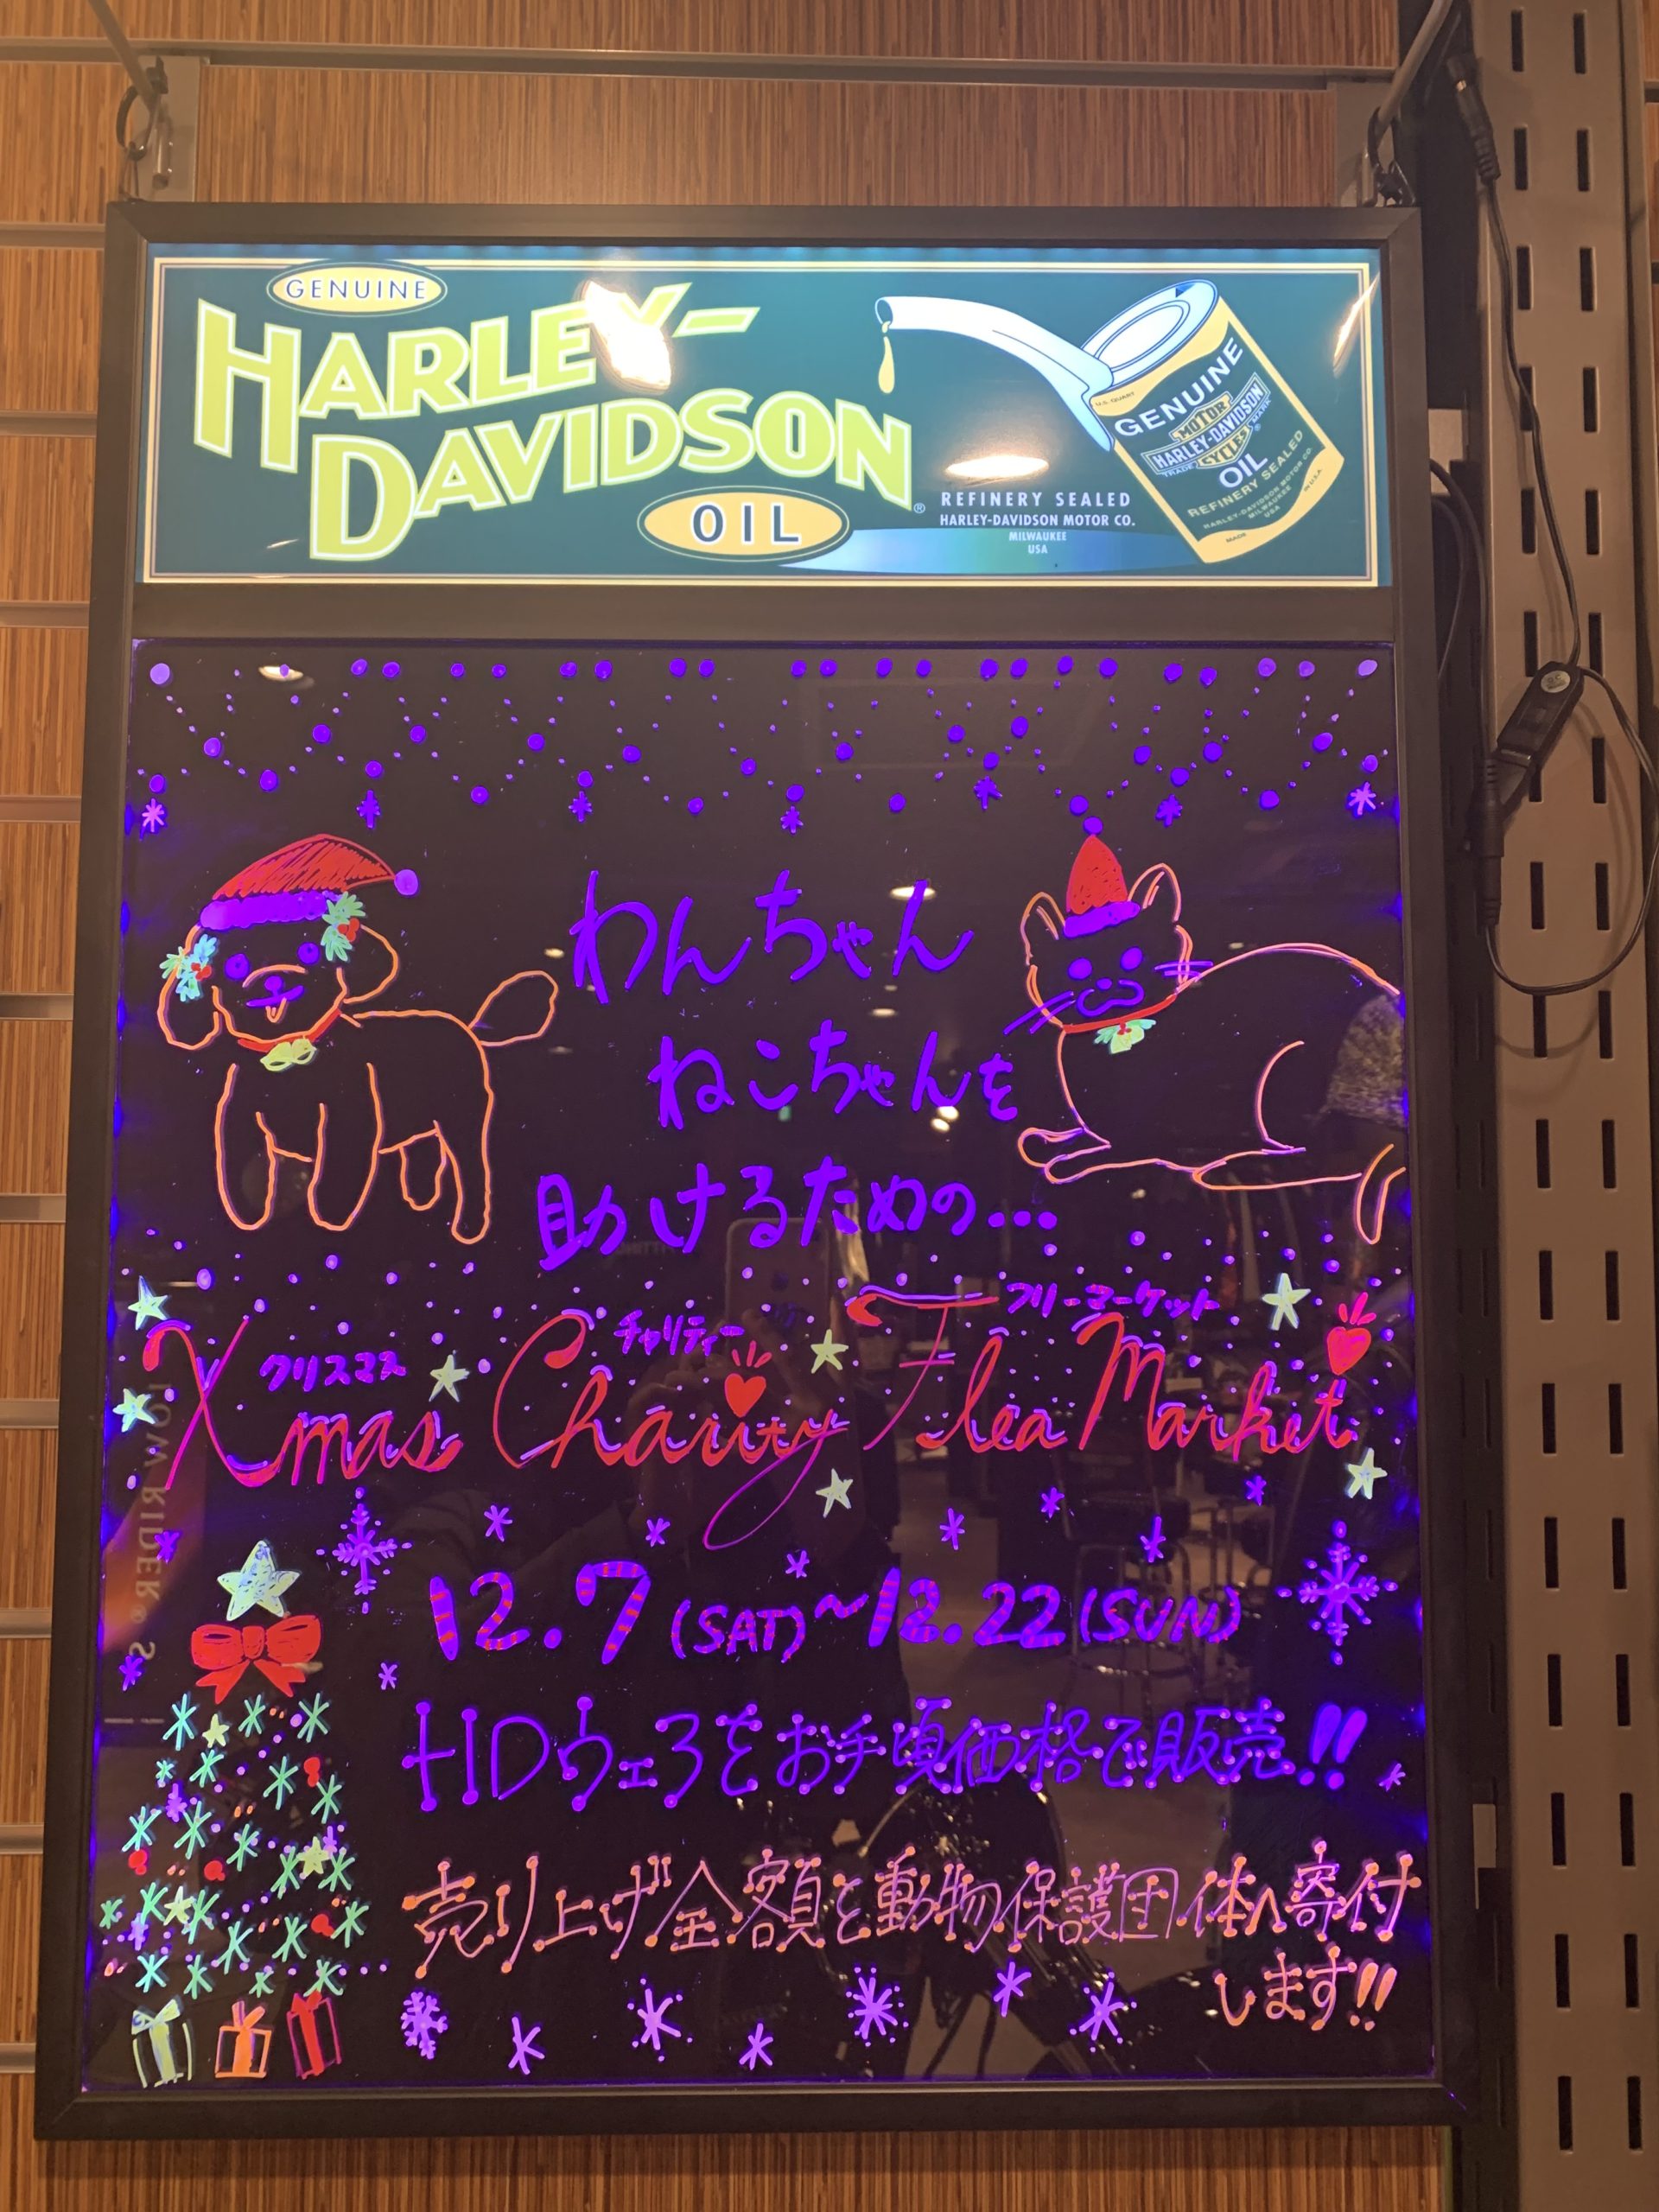 GENUINE
HARLEY-
DAVIDSON
®
OIL
REFINERY SEALED
HARLEY-DAVIDSON MOTOR CO.
MILWAUKEE
USA
U.S. QUART
GENUINE
MOTOR
HARLEY-DAVIDSON
CYCLES
TRADE MARK
OIL
REFINERY SEALED
HARLEY-DAVIDSON MOTOR CO.
MILWAUKEE
USA
MADE IN USA
わんちゃん
ねこちゃんを
助けるための...
クリスマス チャリティー フリーマーケット
Xmas Charity Flea Market
12.7 (SAT)~12.22(SUN)
HDウェアをお手頃価格で販売!!
売り上げ全額を動物保護団体へ寄付
します!!
LOW RIDER® S